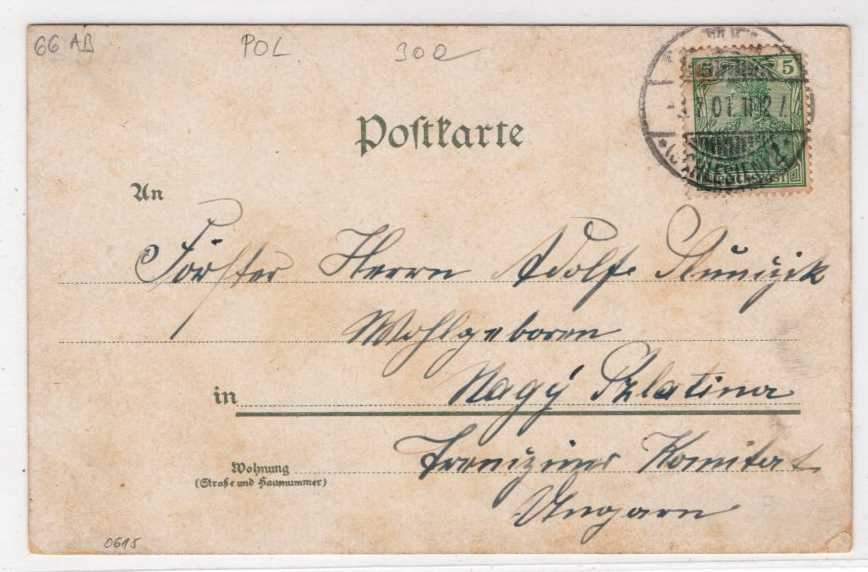 66 AB POL 30Q
5 5
01 11-12
(SCHLESIEN)
Postkarte
An
Förster Herrn Adolf
Wohlgeboren
in Nagy Szlatina
Wohnung Trencziner Komitat
(Straße und Hausnummer)
Ungarn
0615